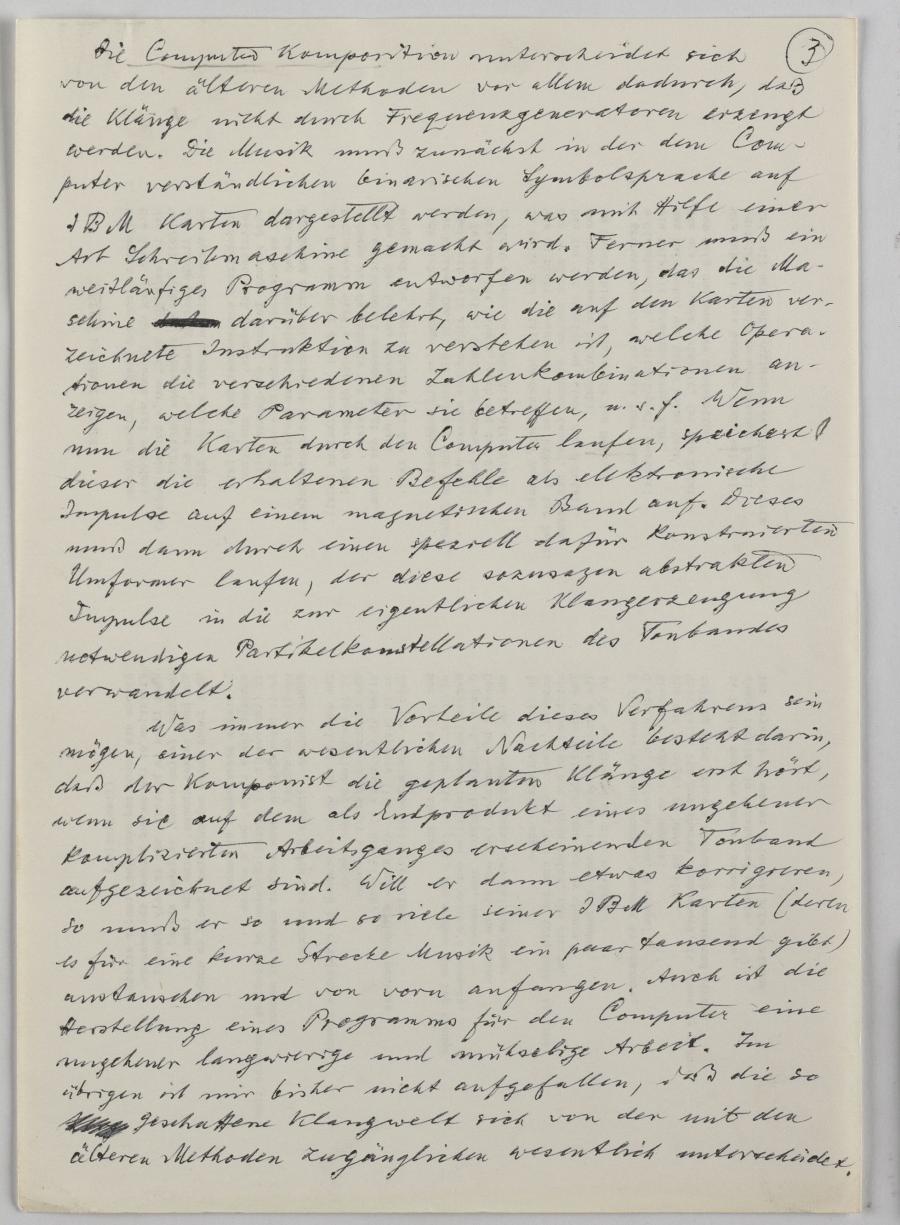 3
Die Computer Komposition unterscheidet sich
von den älteren Methoden vor allem dadurch, daß
die Klänge nicht durch Frequenzgeneratoren erzeugt
werden. Die Musik muß zunächst in der dem Com-
puter verständlichen binarischen Symbolsprache auf
IBM Karten dargestellt werden, was mit Hilfe einer
Art Schreibmaschine gemacht wird. Ferner muß ein
weitläufiges Programm entworfen werden, das die Ma-
schine darüber belehrt, wie die auf den Karten ver-
zeichnete Instruktion zu verstehen ist, welche Opera-
tionen die verschiedenen Zahlenkombinationen an-
zeigen, welche Parameter sie betreffen, u. s. f. Wenn
nun die Karten durch den Computer laufen, speichert
dieser die erhaltenen Befehle als elektronische
Impulse auf einem magnetischen Band auf. Dieses
muß dann durch einen speziell dafür konstruierten
Umformer laufen, der diese sozusagen abstrakten
Impulse in die zur eigentlichen Klangerzeugung
notwendigen Partikelkonstellationen des Tonbandes
verwandelt.
Was immer die Vorteile dieses Verfahrens sein
mögen, einer der wesentlichen Nachteile besteht darin,
daß der Komponist die geplanten Klänge erst hört,
wenn sie auf dem als Endprodukt eines ungeheuer
komplizierten Arbeitsganges erscheinenden Tonband
aufgezeichnet sind. Will er dann etwas korrigieren,
so muß er so und so viele seiner IBM Karten (deren
es für eine kurze Strecke Musik ein paar tausend gibt)
austauschen und von vorn anfangen. Auch ist die
Herstellung eines Programms für den Computer eine
ungeheuer langwierige und mühselige Arbeit. Im
übrigen ist mir bisher nicht aufgefallen, daß die so
geschaffene Klangwelt sich von der mit den
älteren Methoden zugänglichen wesentlich unterscheidet.